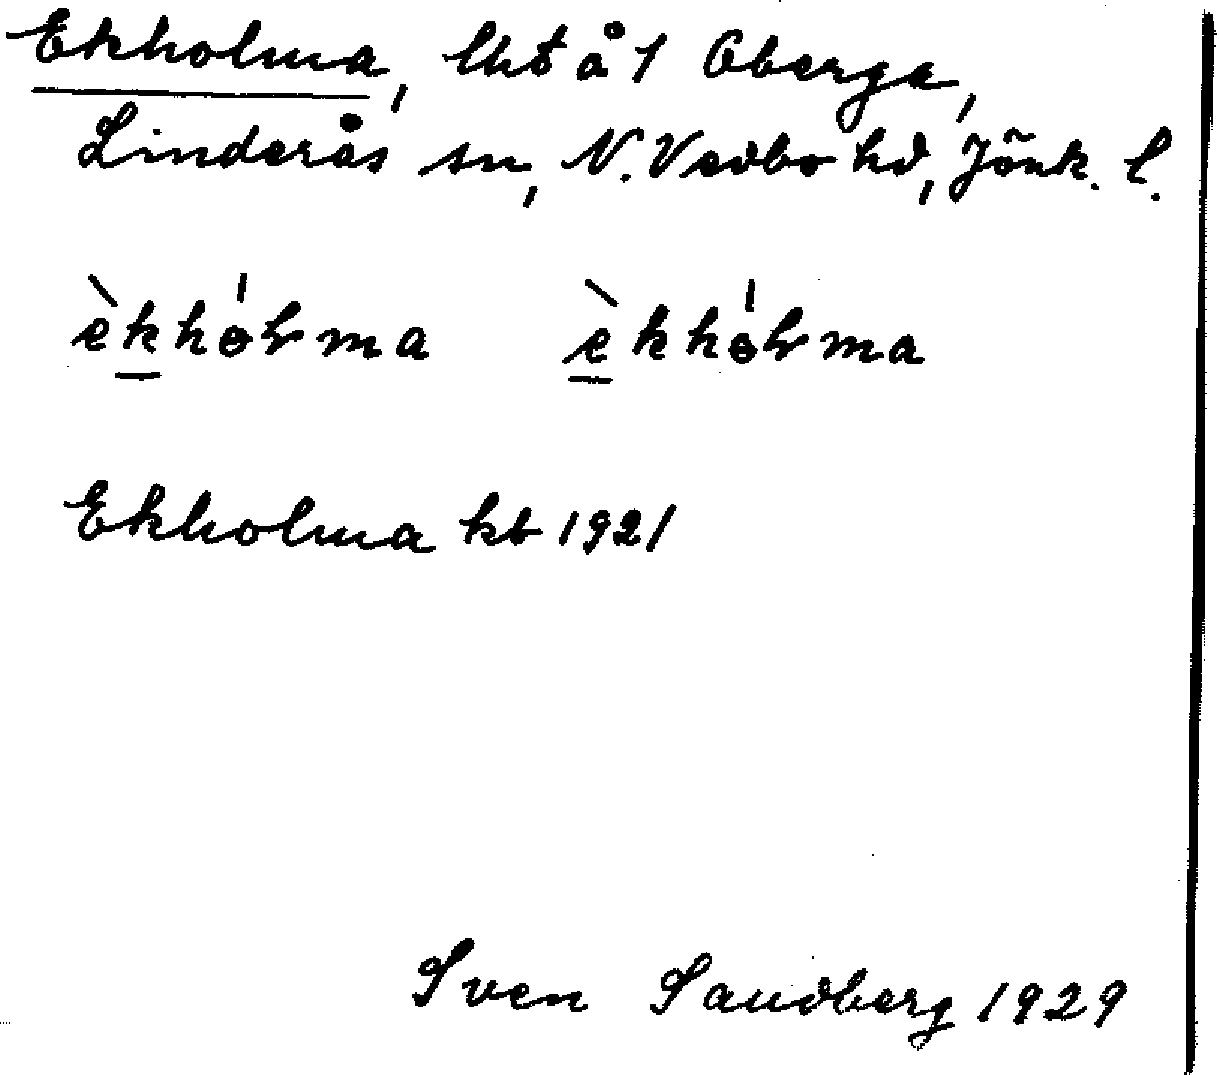 Ekholma, lht å 1 Oberga,
Linderås sn, N. Vedbo hd, Jönk. l.
Ekholma kb 1921
Sven Sandberg 1929